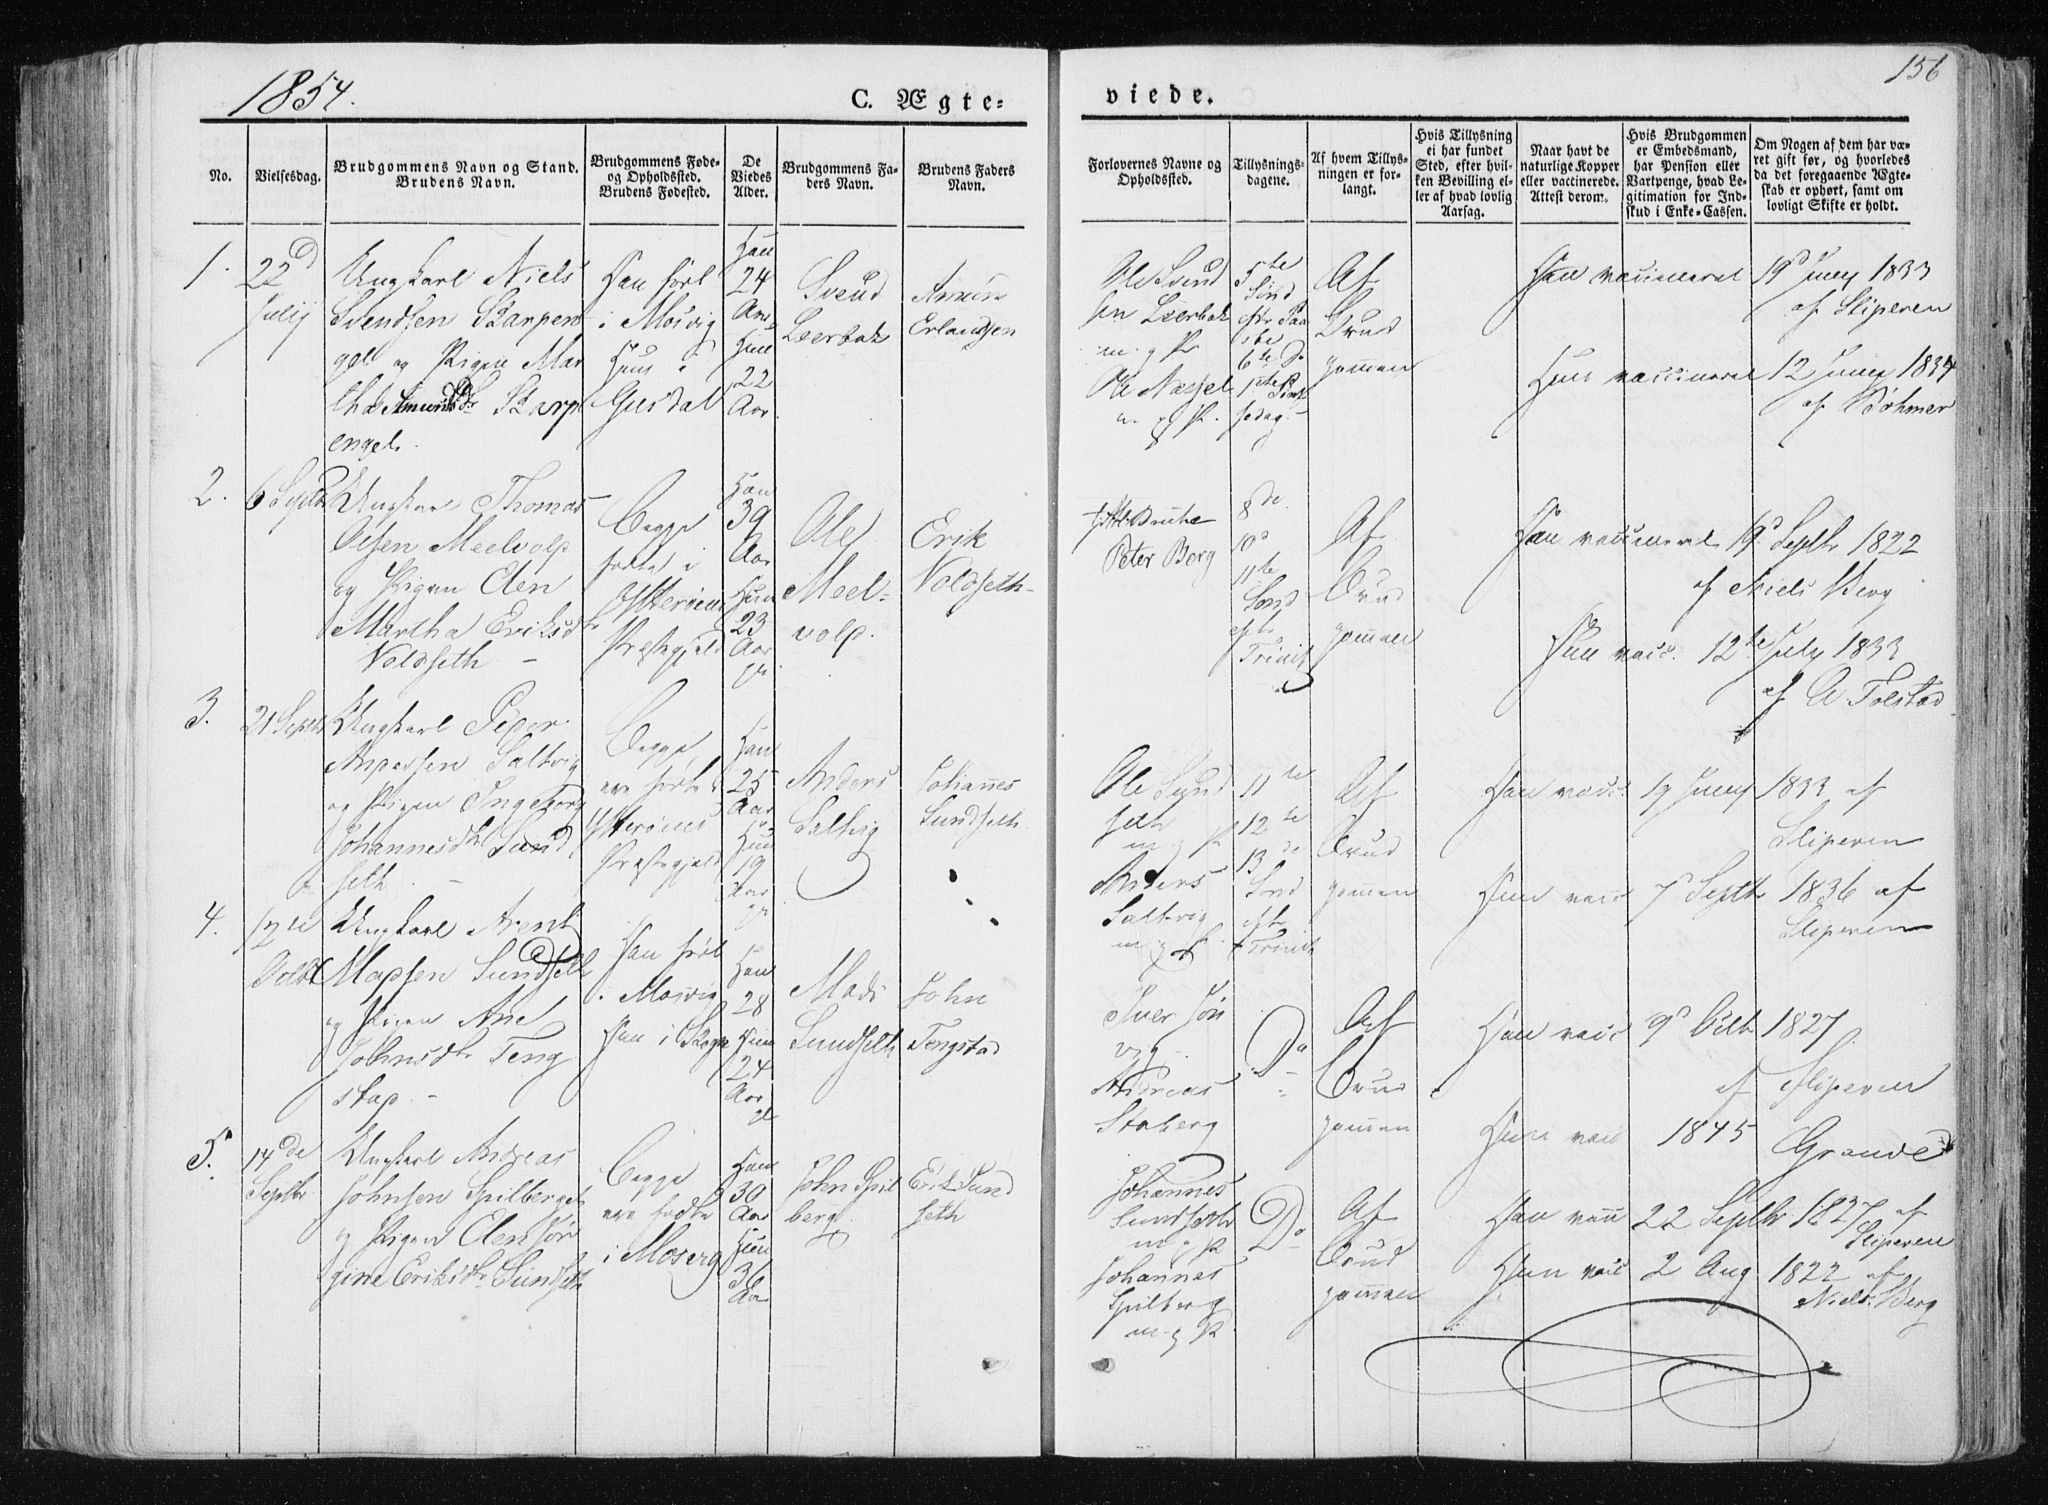 1854.
C. Ægte=
viede.
156
No.
Vielsesdag.
Brudgommens Navn og Stand.
Brudens Navn.
Brudgommens Føde-
og Opholdssted.
Brudens Fødested.
De
Viedes
Alder.
Brudgommens Fa-
ders Navn.
Brudens Faders
Navn.
Forlovernes Navne og
Opholdssted.
Tillysnings-
dagene.
Af hvem Tillys-
ningen er for-
langt.
Hvis Tillysning
ei har fundet
Sted, efter hvil-
ken Bevilling el-
ler af hvad lovlig
Aarsag.
Naar havt de
naturlige Kopper
eller vaccinerede.
Attest derom.
Hvis Brudgommen
er Embedsmand,
har Pension eller
Vartpenge, hvad Le-
gitimation for Ind-
skud i Enke-Cassen.
Om Nogen af dem har væ-
ret gift før, og hvorledes
da det foregaaende Ægte-
skab er ophørt, samt om
lovligt Skifte er holdt.
1.
22d
July
Ungkarl Niels
Svendsen Skarpen
gel og Pigen Mar
tha Amundsdr Skarp
engel.
Han født
i Mosvig
Hun i
Gusdal
Han
24
Aar
Hun
22
Aar
Svend
Leerbak
Amun
Erlandsen
Ole Svend
sen Leerbak
m. g P.
Ole Næsset
m. g P.
5te
Sønd
eftr Paa
ske
6te Do
1ste
Af
Brud
gommen
Han vaccineret 19d Juny 1833
af Sliperen
Hun vaccineret 12 Juny 1834
af Bøhmer
2.
6 Septb
Ungkarl Thomas
Olsen Meelvold
og Pigen Elen
Martha Eriksdr
Voldseth –
Begge
fødte i
Ytterøens
Præstegjeld
Han
39
Aar
Hun
23
Aar
Ole
Meel=
vold.
Erik
Voldseth
Peter Borg
8de
10d
11te
Sønd
eft
Trinit
Af
Brud
gommen
Han vaccineret 19d Septbr 1822
af Niels Berg
Hun vacc. 12te July 1833
af A Folstad
3.
21 Septb
Ungkarl Peder
Andersen Saltvig
og Pigen Ingeborg
Johannesdtr Sund
seth. –
Begge
ere fødte i
Ytterøens
Præstegjeld
Han
25
Aar
Hun
19
Aar
Anders
Saltvig
Johannes
Sundseth
Ole Sund
seth
m g P
Anders
Saltvig
m g P.
11te
12te
13de
Sønd
eft
Trinit
Af
Brud
gommen
Han vacc. 19 Juny 1833 af
Sliperen
Hun vacc 7d Septbr 1836 af
Sliperen
4.
12te
Octbr
Ungkarl Arent
Madsen Sundseth
og Pigen Ane
Johnsdtr Teng
stad. –
Han født
i Mosvig
Hun i Skogn
Han
28
Hun
24
Aar
Mads
Sundseth
John
Tengstad
Iver Jør
vig.
Andreas
Staberg
Do
Af
Brud
gommen
Han vacc 9d Octb 1827.
af Sliperen
Hun vacc 1845 Grande
5.
14de
Septbr
Ungkarl Andreas
Johnsen Spilberget
og Pigen Elen Jør
gine Eriksdr Sundseth
Begge
ere fødte
i Mosvig
Han
30
Aar
Hun
36
Aar
John Spil
berg
Erik Sund
seth
Johannes
Sundseth
m g P
Johannes
Spilberg
m. g P
Do
Af
Brud
gommen
Han vacc 22 Septbr 1827 af
Sliperen
Hun vacc 2 Aug 1822 af
Niels Berg